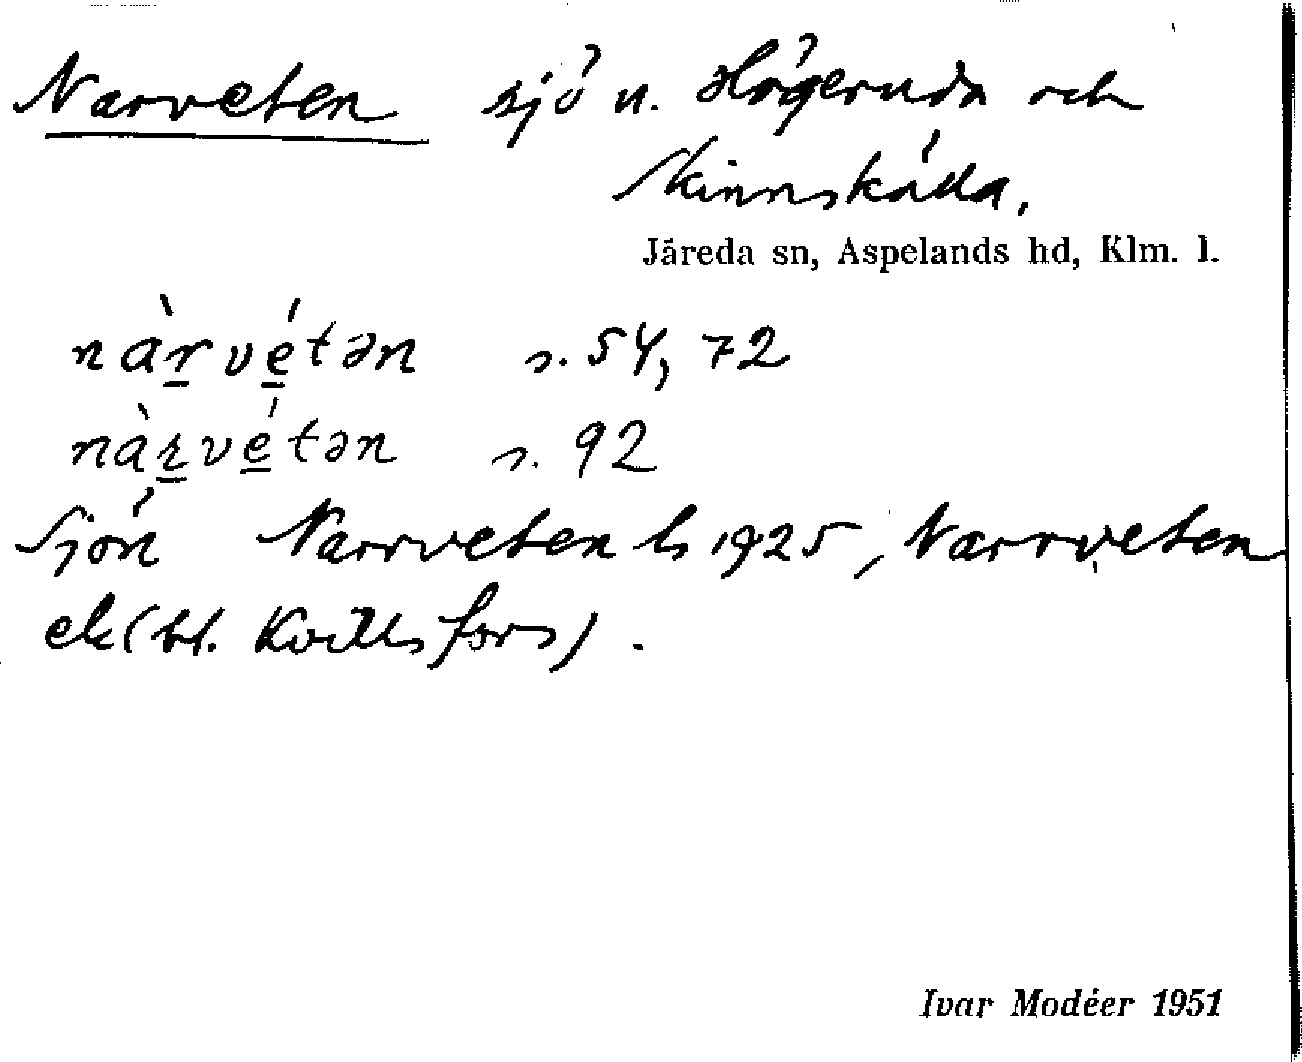 Narveten sjö u. Högeruda och
Skinnskälla.
Järeda sn, Aspelands hd, Klm. l.
nàr̲vé̲tən s. 54, 72
nàr̲vé̲tən s. 92
Sjön Narrveten ls 1925, Narrveten
ek (bl. Kvillsfors).
Ivar Modéer 1951